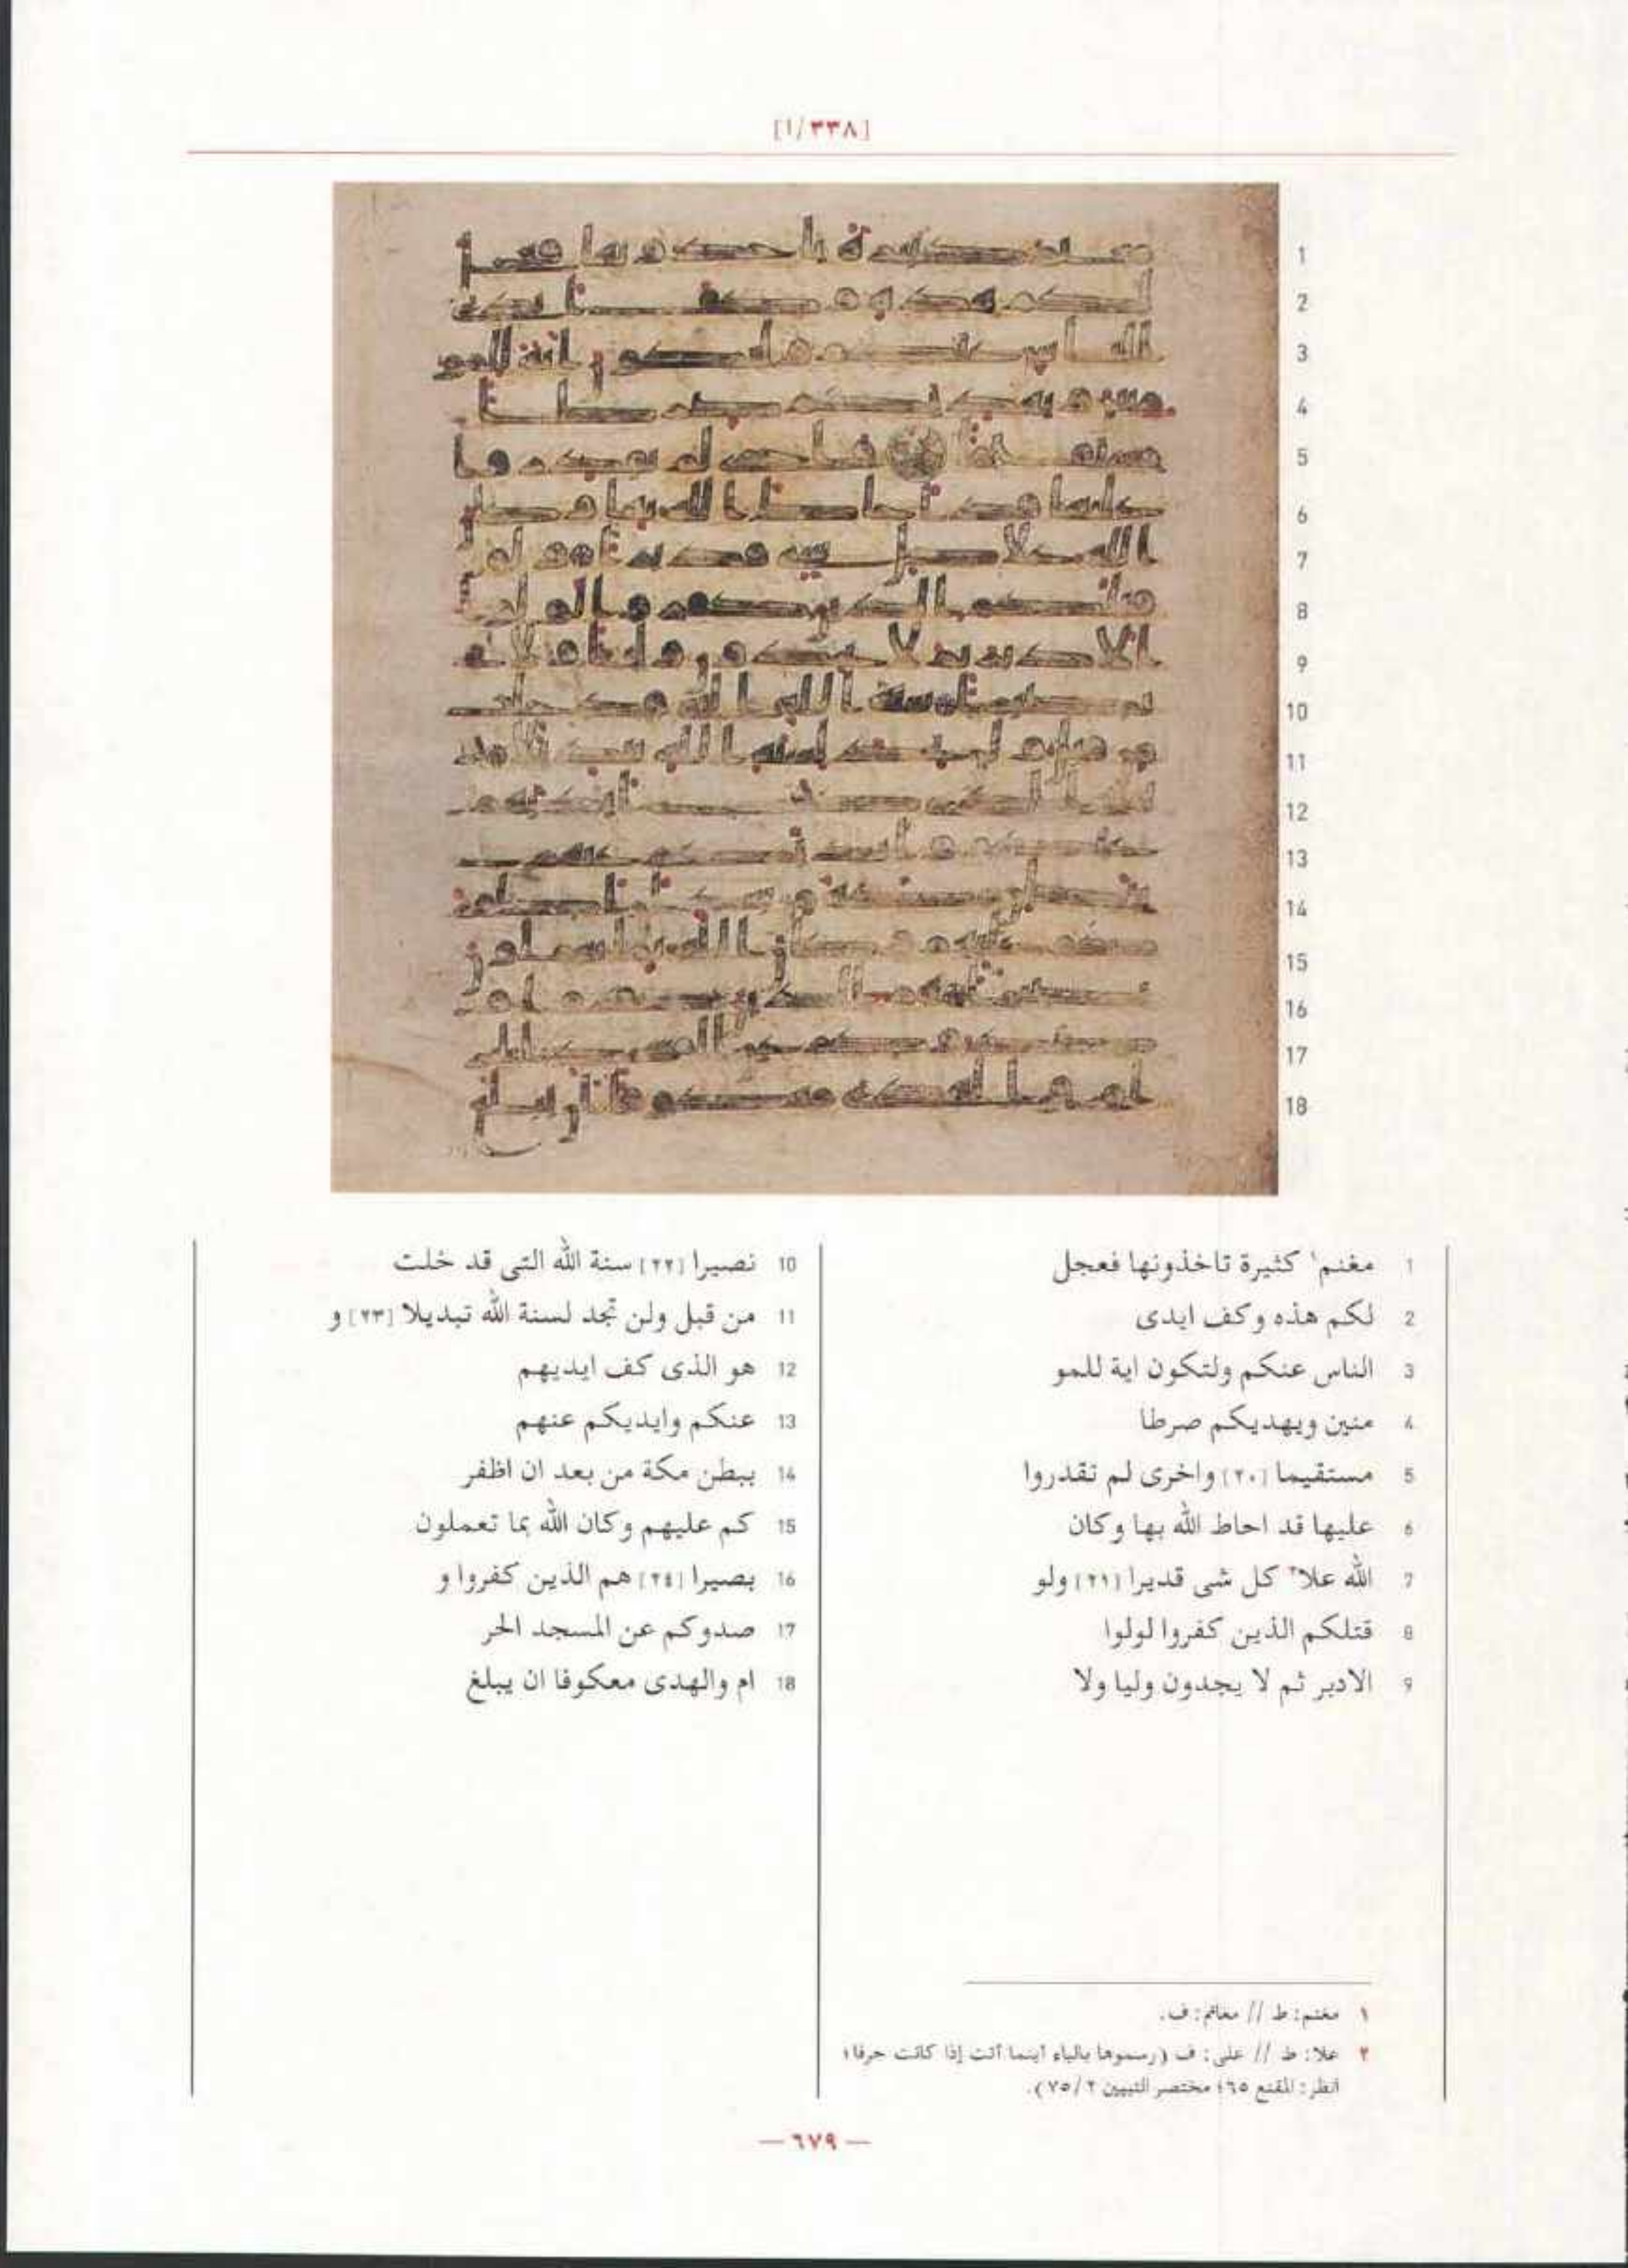 [٣٣٨/١]
1 مغنم١ كثيرة تاخذونها فعجل
2 لكم هذه وكف ايدى
3 الناس عنكم ولتكون اية للمو
4 منين ويهديكم صرطا
5 مستقيما [٢٠] واخرى لم تقدروا
6 عليها قد احاط الله بها وكان
7 الله علا٢ كل شى قديرا [٢١] ولو
8 قتلكم الذين كفروا لولوا
9 الادبر ثم لا يجدون وليا ولا
10 نصيرا [٢٢] سنة الله التى قد خلت
11 من قبل ولن تجد لسنة الله تبديلا [٢٣] و
12 هو الذى كف ايديهم
13 عنكم وايديكم عنهم
14 ببطن مكة من بعد ان اظفر
15 كم عليهم وكان الله بما تعملون
16 بصيرا [٢٤] هم الذين كفروا و
17 صدوكم عن المسجد الحر
18 ام والهدى معكوفا ان يبلغ
١ مغنم: ط // مغانم: ف.
٢ علا: ط // على: ف (رسموها بالياء أينما أتت إذا كانت حرفا؛
أنظر: المقنع ٦٥؛ مختصر التبيين ٢/ ٧٥).
— ٦٧٩ —